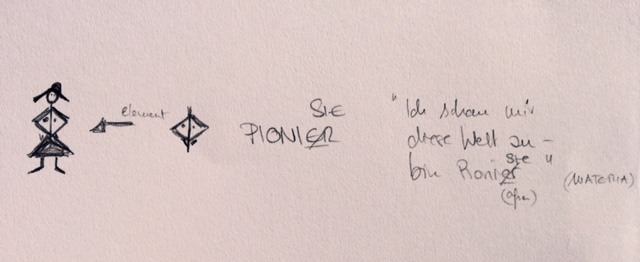 element
SIE
PIONIER
"Ich schau mir
diese Welt an -
bin Pionier sie"
(MATERIA)